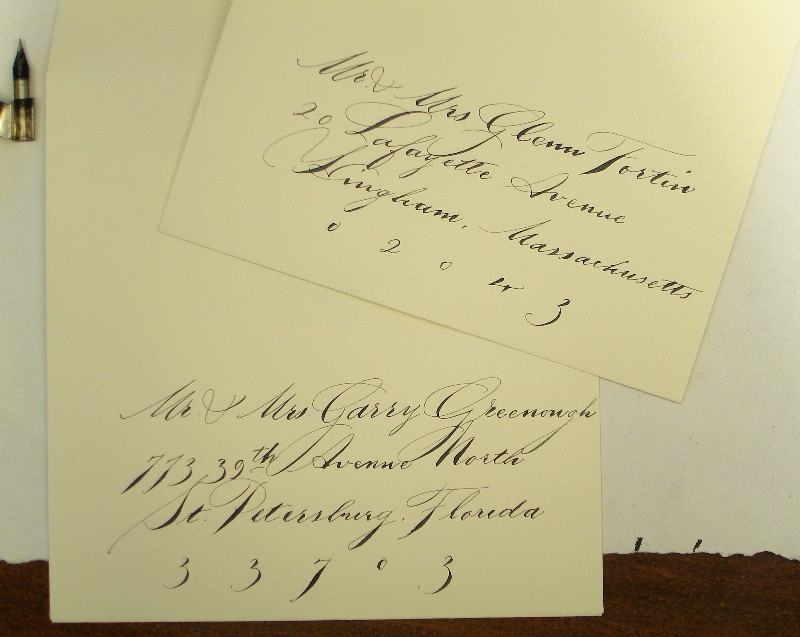 Mr. & Mrs Glenn Fortin
20 Lafayette Avenue
Hingham, Massachusetts
0 2 0 4 3
Mr. & Mrs Garry Greenough
773 39th Avenue North
St. Petersburg, Florida
3 3 7 0 3